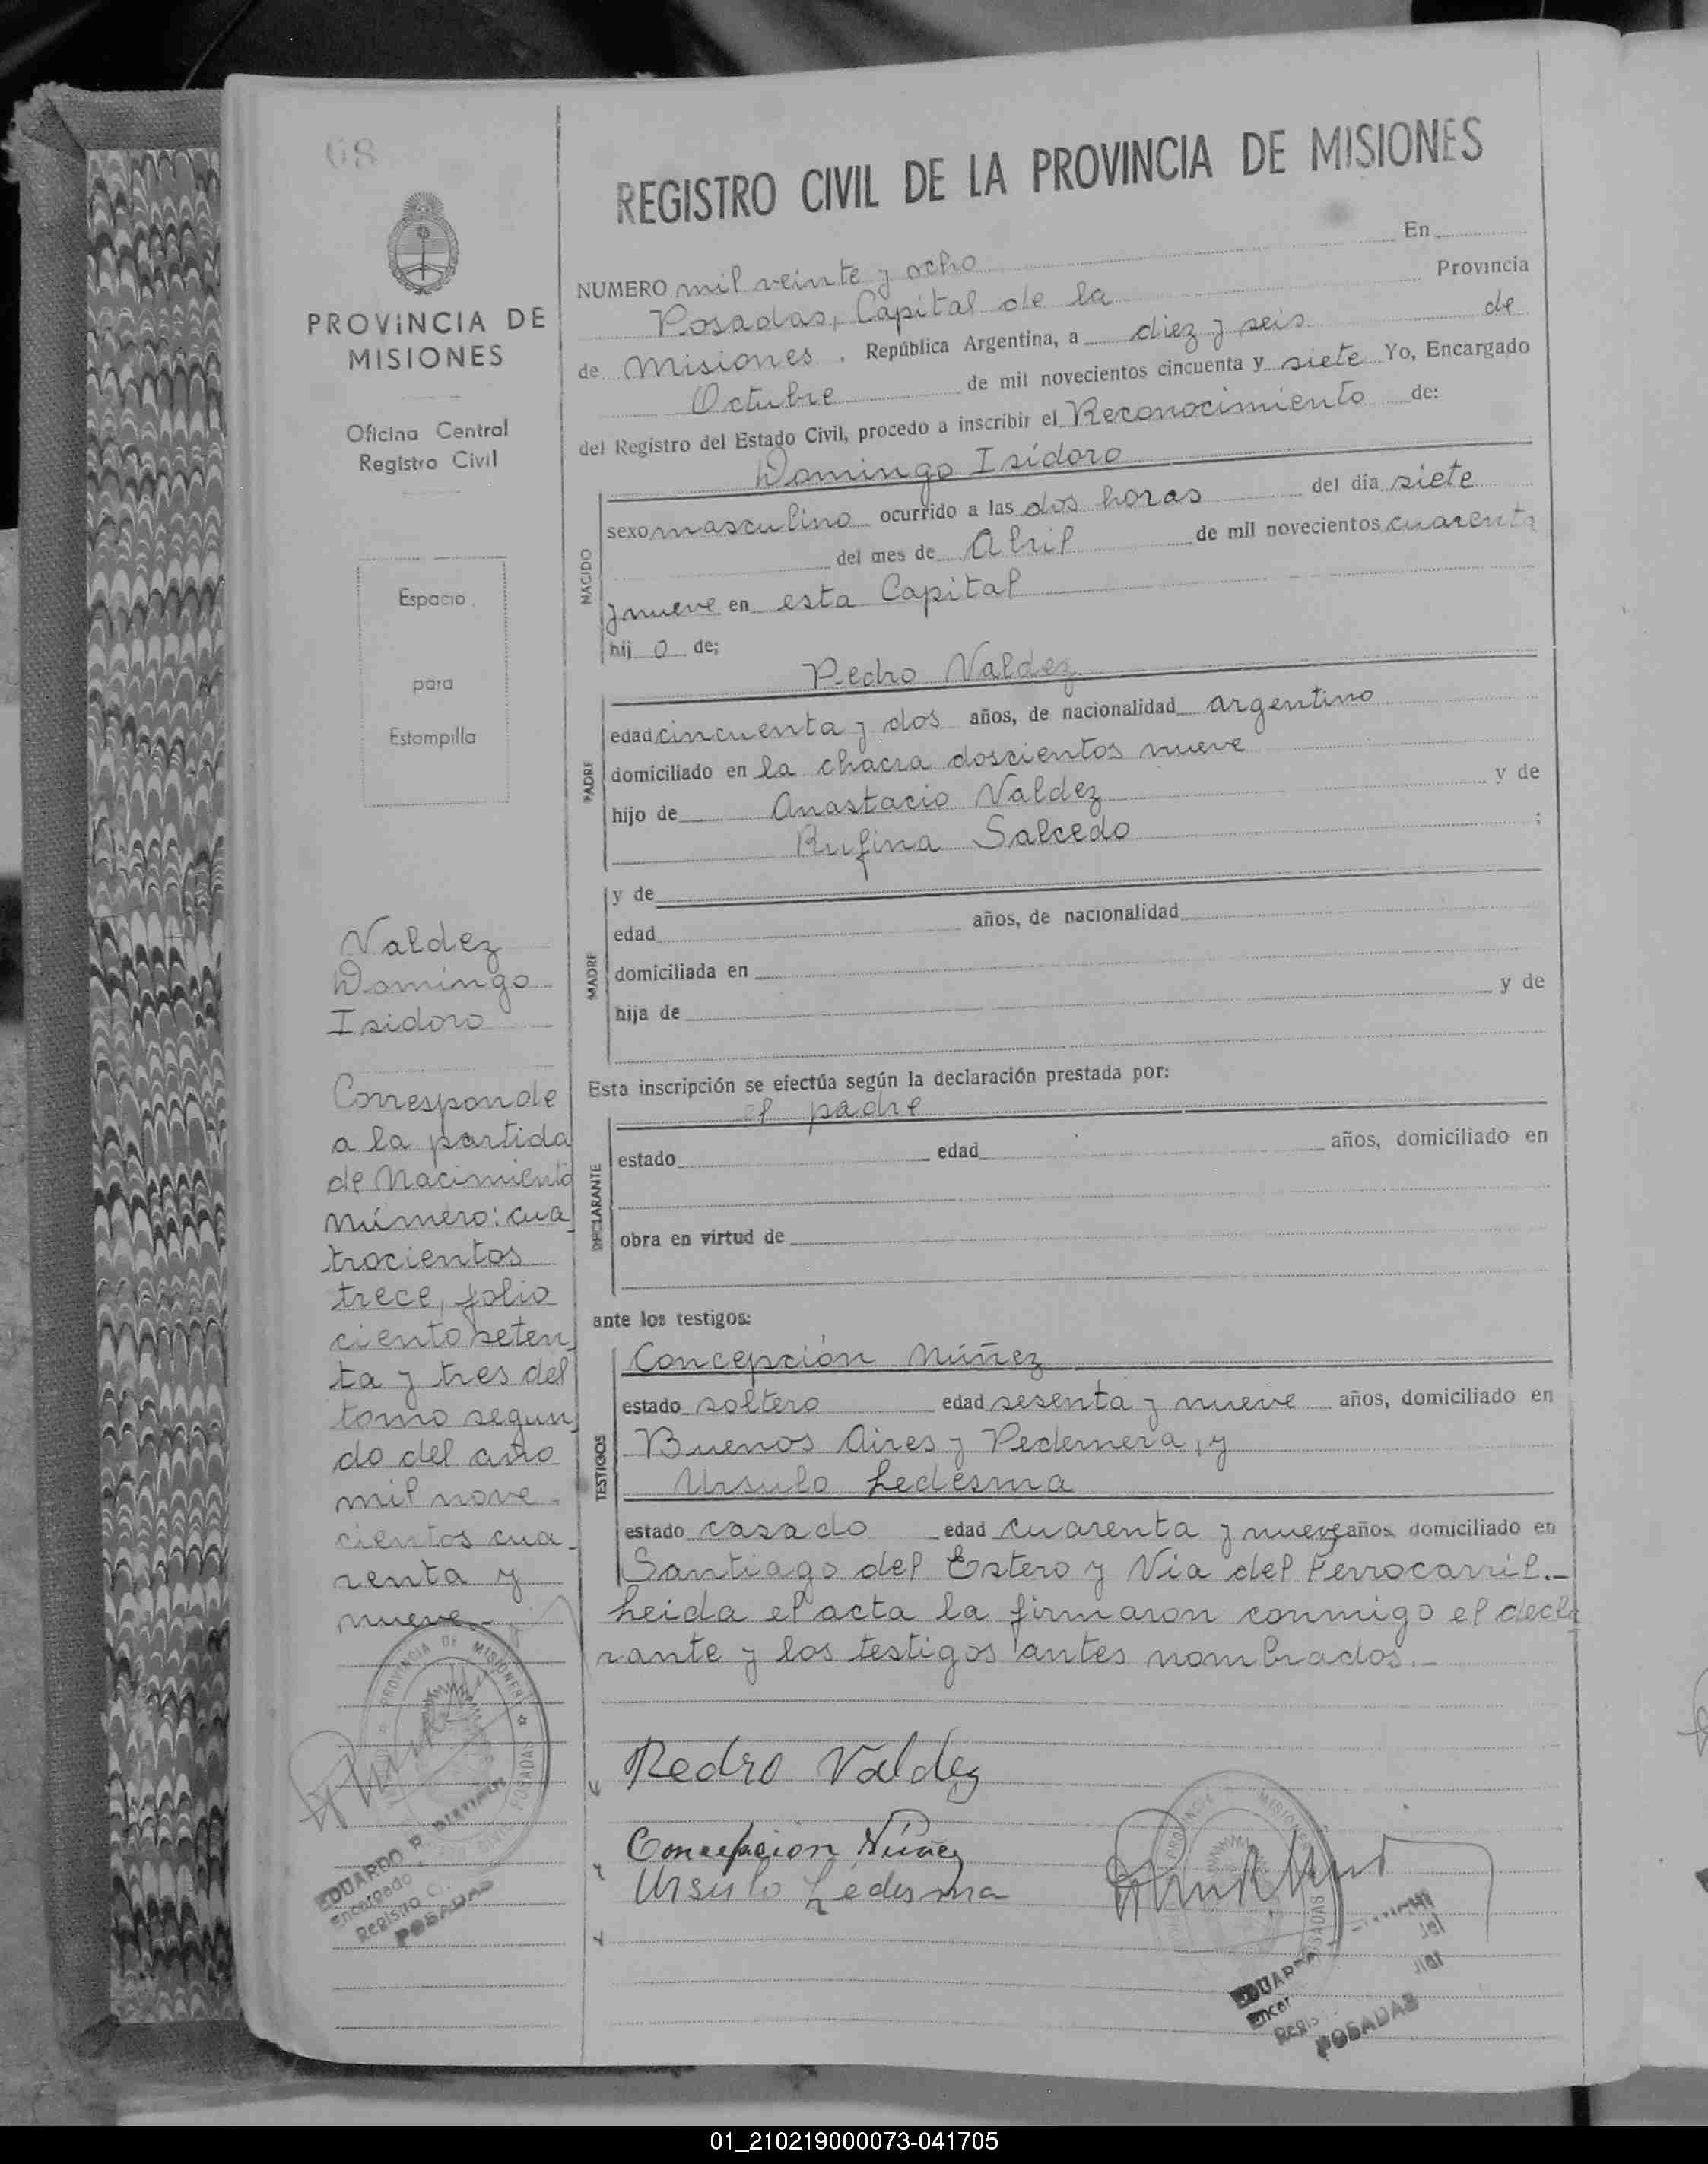 68
PROVINCIA DE
MISIONES
Oficina Central
Registro Civil
Espacio
para
Estampilla
Valdez
Domingo
Isidoro
Corresponde
a la partida
de Nacimiento
número: cua
trocientos
trece, folio
ciento seten
ta y tres del
tomo segun
do del año
mil nove-
cientos cua-
renta y
nueve.-
PROVINCIA DE MISIONES
POSADAS
EDUARDO R.
Encargado
Registro
POSADAS
REGISTRO CIVIL DE LA PROVINCIA DE MISIONES
NUMERO mil veinte y ocho En
Posadas, Capital de la Provincia
de Misiones, República Argentina, a diez y seis de
Octubre de mil novecientos cincuenta y siete Yo, Encargado
del Registro del Estado Civil, procedo a inscribir el Reconocimiento de:
Domingo Isidoro
NACIDO
sexo masculino ocurrido a las dos horas del día siete
del mes de Abril de mil novecientos cuarenta
y nueve en esta Capital
hij o de;
Pedro Valdez
PADRE
edad cincuenta y dos años, de nacionalidad argentino
domiciliado en la chacra doscientos nueve
hijo de Anastacio Valdez y de
Rufina Salcedo ;
MADRE
y de
edad años, de nacionalidad
domiciliada en
hija de y de
Esta inscripción se efectúa según la declaración prestada por:
el padre
DECLARANTE
estado edad años, domiciliado en
obra en virtud de
ante los testigos:
TESTIGOS
Concepción Núñez
estado soltero edad sesenta y nueve años, domiciliado en
Buenos Aires y Pedernera, y
Ursulo Ledesma
estado casado edad cuarenta y nueve años domiciliado en
Santiago del Estero y Via del Ferrocarril.-
Leida el acta la firmaron conmigo el decla
rante y los testigos antes nombrados.-
Pedro Valdez
Concepcion Núñez
Ursulo Ledesma
POSADAS
01_210219000073-041705